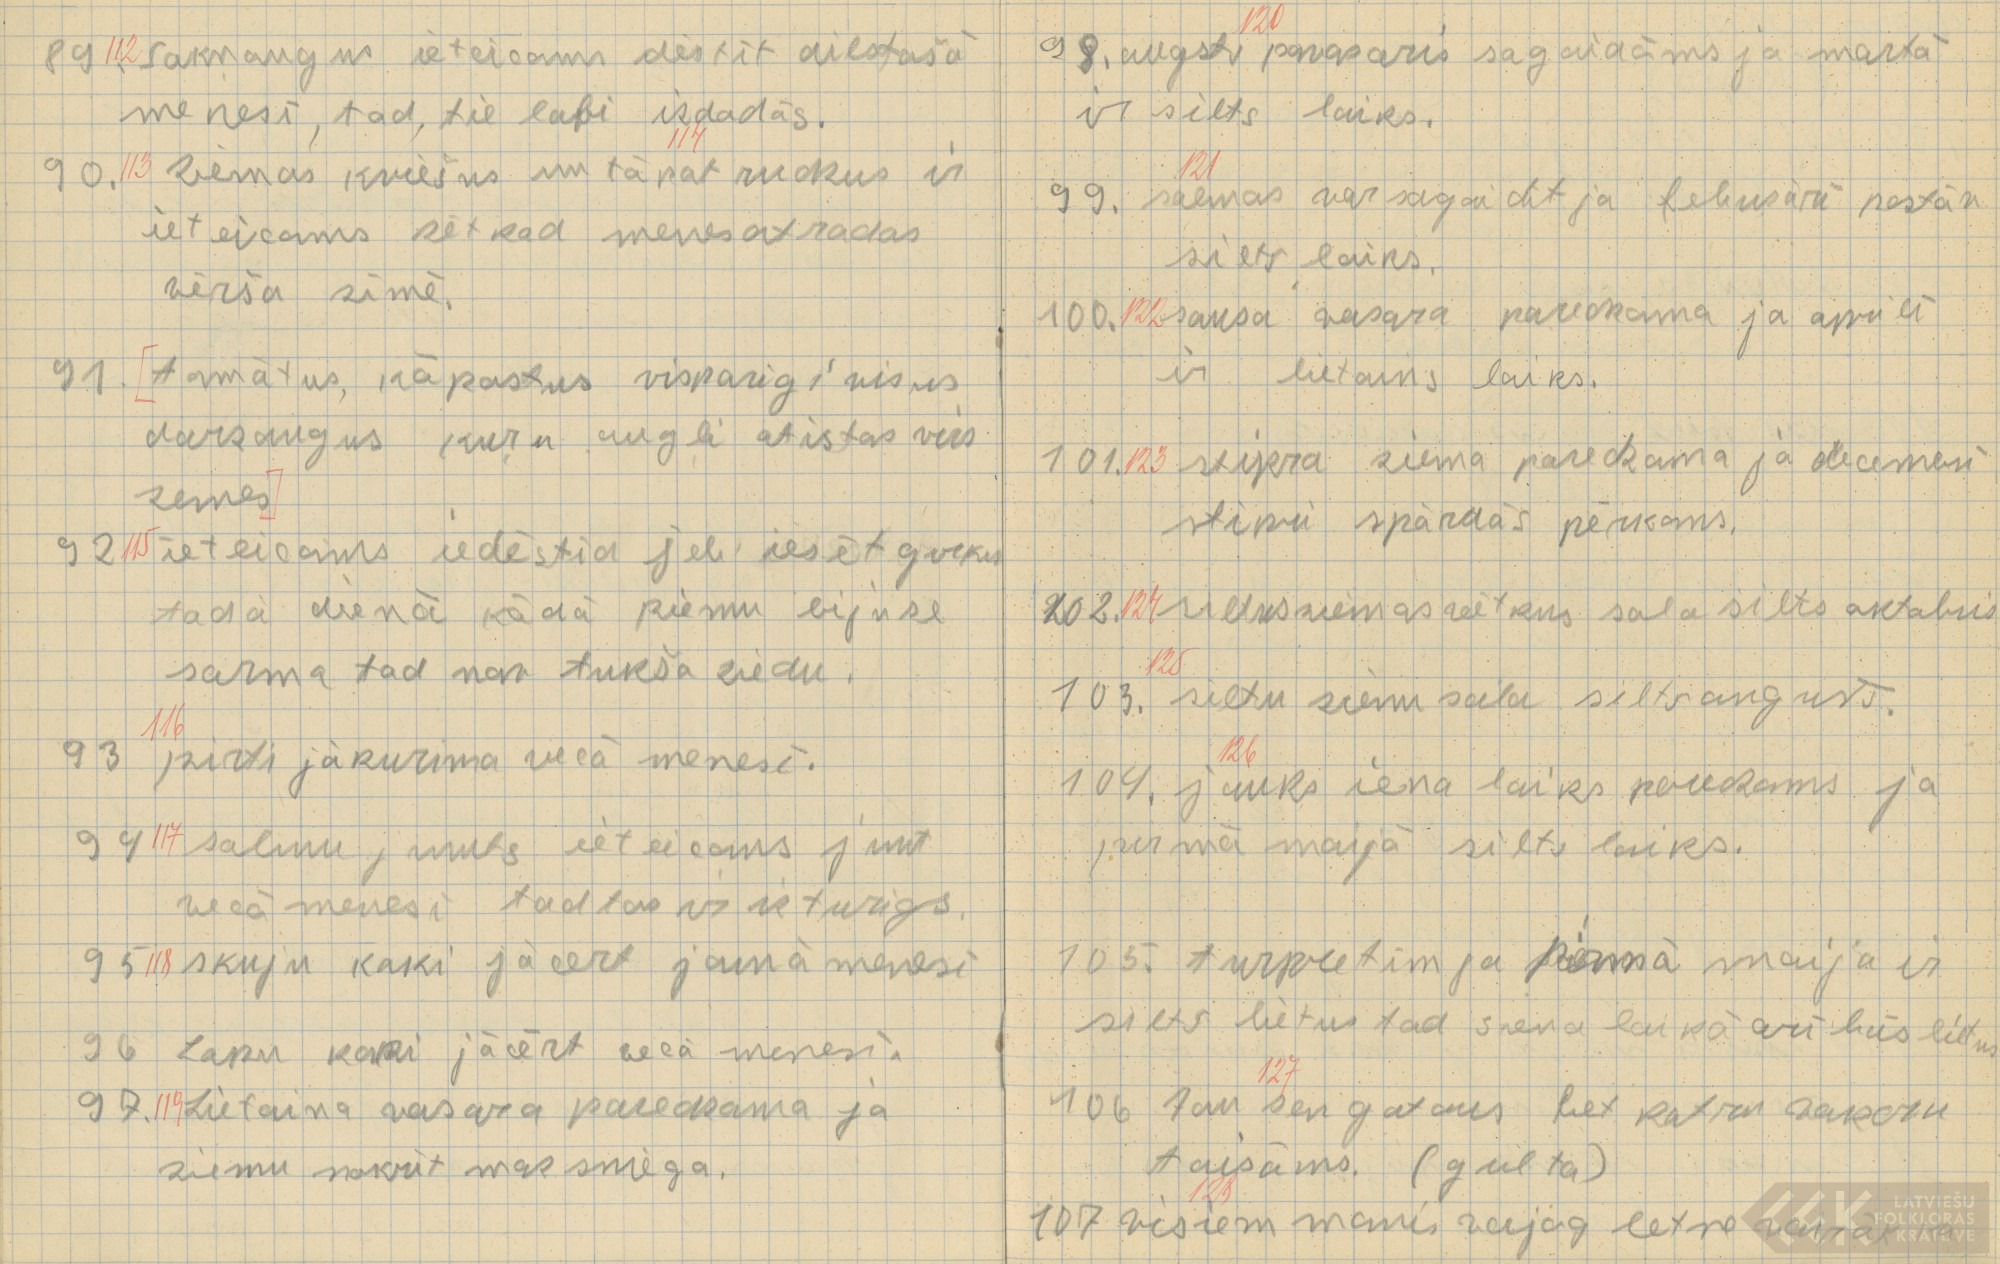 89 112 Saknaugus ieteicams dēstīt dilstašā
menesī, tad, tie labi izdadās.
114
90. 113 Ziemas kviešus un tāpat rudzus ir
ieteicams sēt kad menes atradas
vērša zīmē.
91. [tomātus, kāpostus visparigi visus
darzaugus kuŗu augļi atistas virs
zemes]
92 115 ieteicams iedēstid jeb iesēt gurkus
tadā dienā kādā ziemu bijuse
sarma tad nav tukša ziedu.
116
93 pirti jākurina vecā menesī.
94 117 salmu jumts ieteicams jumt
vecā menesi tad tas ir izturigs.
95 118 skuju koki jācert jaunā menesi
96 Lapu koki jācērt vecā menesī.
97. 119 Lietaina vasara paredzama ja
ziemu nokrīt maz sniega.
120
98. augsts pavasaris sagaidāms ja martā
ir silts laiks.
121
99. salnas var sagaidīt ja februārī pastāv
silts laiks.
100. 122 sausa vasara paredzama ja aprilī
ir lietains laiks.
101. 123 stipra ziema paredzama ja decemberi
stipri spārdās pērkons.
102. 124 siltus ziemas svētkus sola silts oktobris
125
103. siltu ziemu sola silts augusts.
126
104. jauks siena laiks paredzams ja
pirmā maijā silts laiks.
105. turpretim ja pirmā maija ir
silts lietus tad siena laikā arī būs lietus
127
106 Jau sen gatavs bet katru vakaru
taisāms. (gulta)
128
107 visiem manis vajag bet ne vairāk
LATVIEŠU
FOLKLORAS
KRĀTUVE